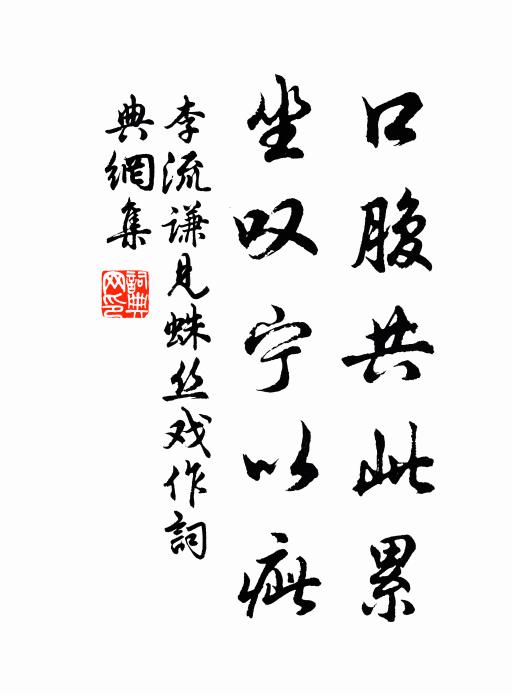 口腹共此累
坐叹宁以疵
李流谦见蛛丝戏作詞
典網集
詞典网印